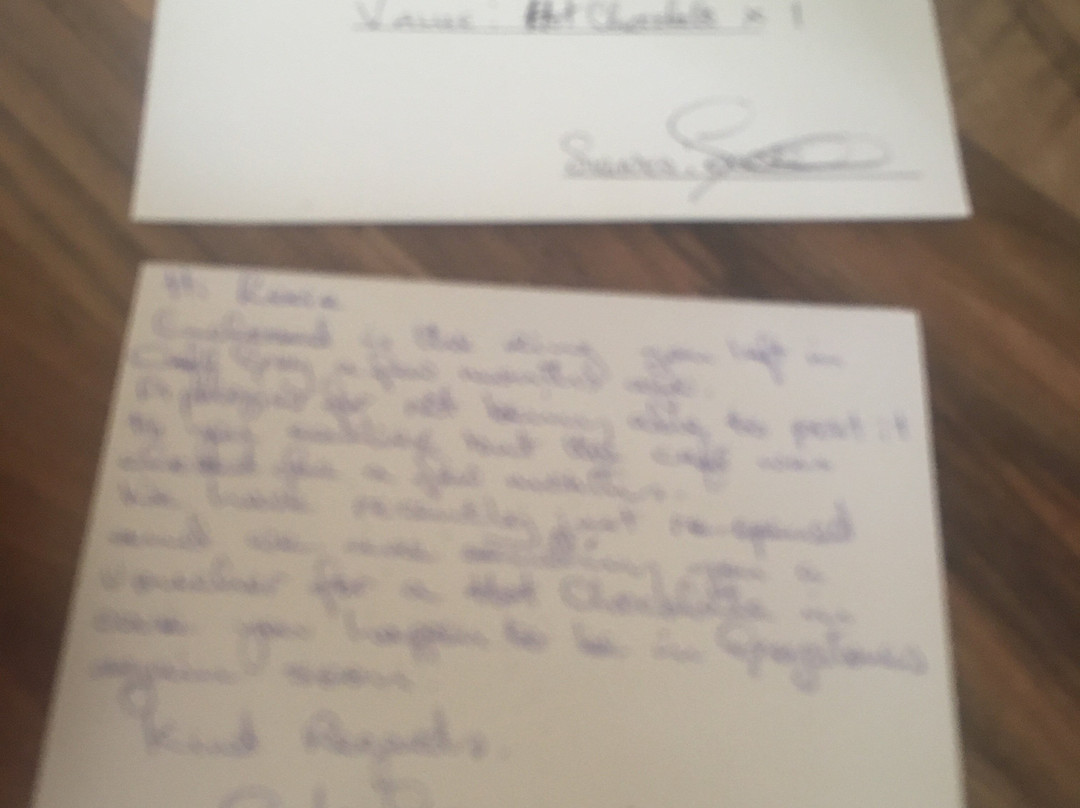 Value: Hot Chocolate x 1
Hi
Enclosed is the ring you left in
Café Gray a few months ago.
Apologies for not being able to post it
to you but the café was
closed for a few months.
We have recently just re-opened
and we are sending you a
voucher for a Hot Chocolate in
case you happen to be in Greystones
again soon
Kind Regards.